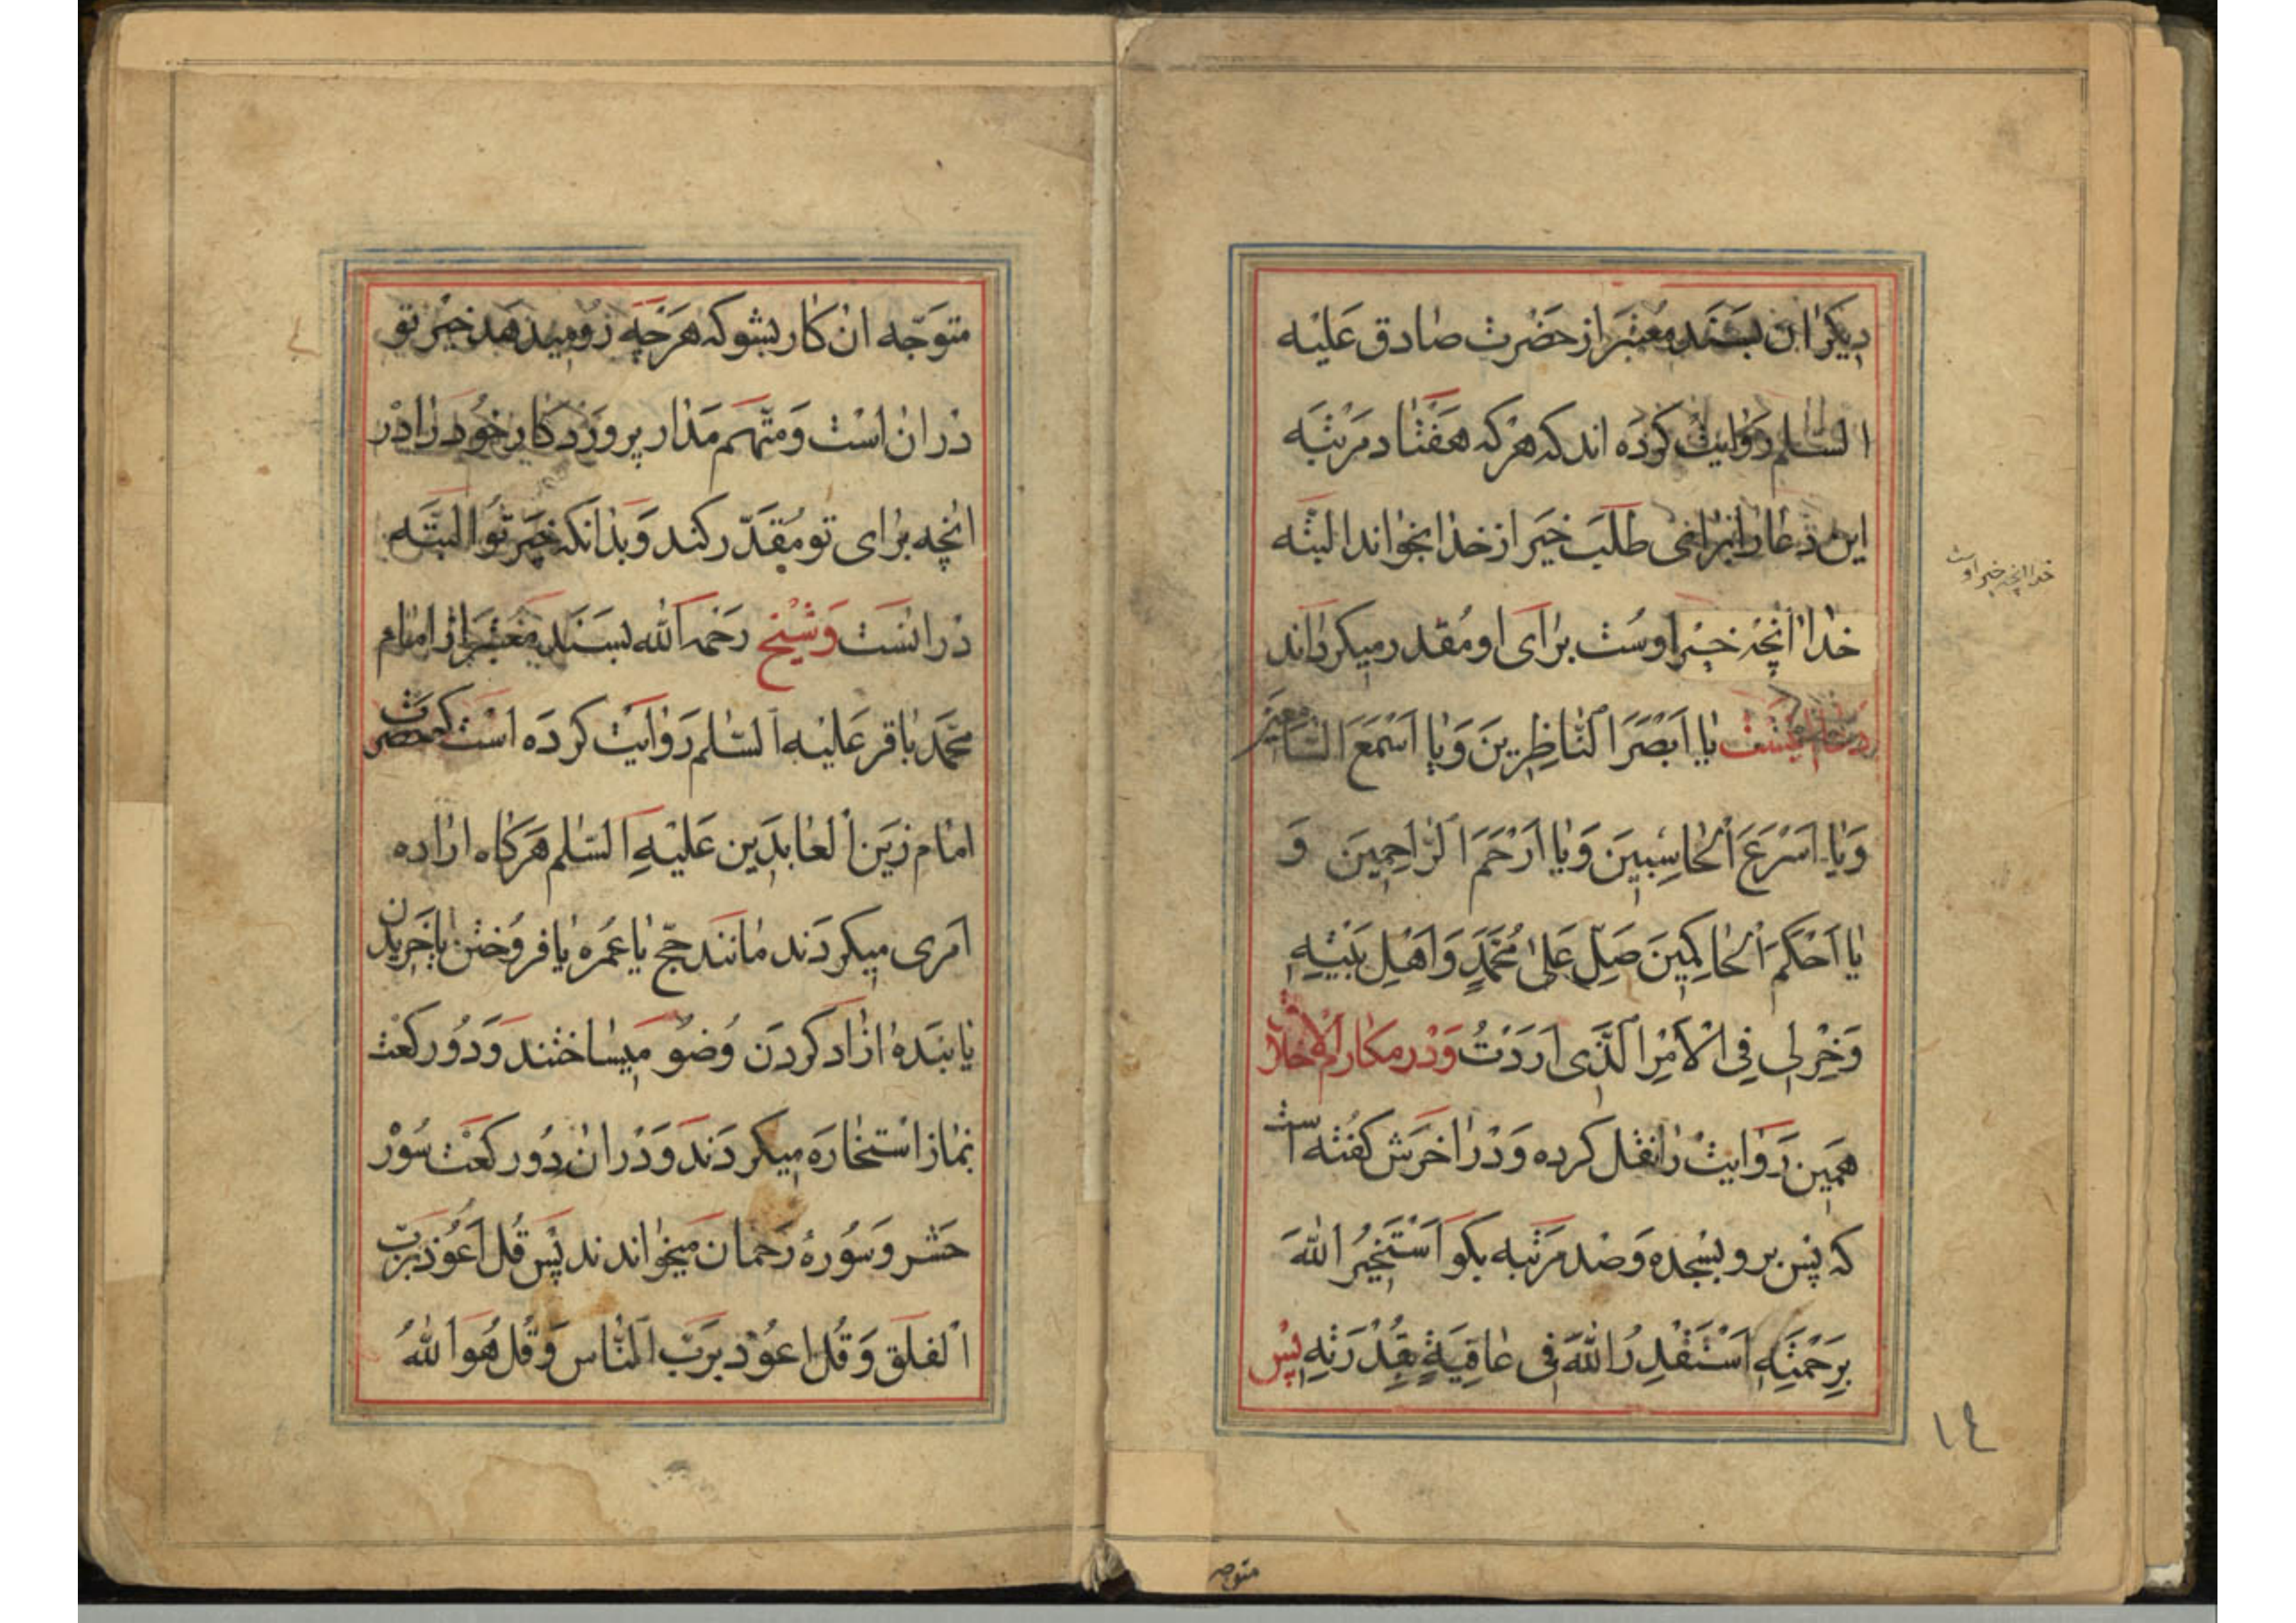 دیکران بسند معتبر از حضرت صادق علیه
السلم روایت کرده اند که هر که هفتاد مرتبه
این دعا را برای طلب خیر از خدا بخواند البته
خدا آنچه خیر اوست برای او مقدر میکرداند
خدا آنچه خیر اوست
یا اَبْصَرَ النّاظِرینَ وَیا اَسْمَعَ السّامعین
وَیا اَسْرَعَ الْحاسِبینَ وَیا اَرْحَمَ الرّاحِمینَ وَ
یا اَحْکَمَ الْحاکِمینَ صَلِّ عَلیٰ مُحَمَّدٍ وَاَهْلِ بَیْتِهِ
وَخِرْلی فِی الْاَمْرِ الَّذی اَرَدْتُ وَدر مکارم الاخلاق
همین روایت را نقل کرده و در اخرش کفته است
که پس برو بسجده و صد مرتبه بکو اَسْتَخیرُ اللهَ
بِرَحْمَتِهِ اَسْتَقْدِرُ اللهَ فی عافِیَةٍ بِقُدْرَتِهِ پس
١٤
متوجه
متوجّه ان کار بشو که هرچه رو میدهد خیر تو
در ان است و متّهم مدار پروردکار خود را در
انچه برای تو مقدّر کند و بدانکه خیر تو البتّه
در انست و شیخ رحمه الله بسند معتبر از امام
محمّد باقر علیه السّلم روایت کرده است که حضرت
امام زین العابدین علیه السّلم هرکاه اراده
امری میکردند مانند حجّ یا عمره یا فروختن یا خریدن
یا بنده ازاد کردن وضو میساختند و دو رکعت
نماز استخاره میکردند و در ان دو رکعت سور
حشر و سوره رحمان میخواندند پس قل اعوذ بربّ
الفلق و قل اعوذ بربّ النّاس و قل هو اللهُ